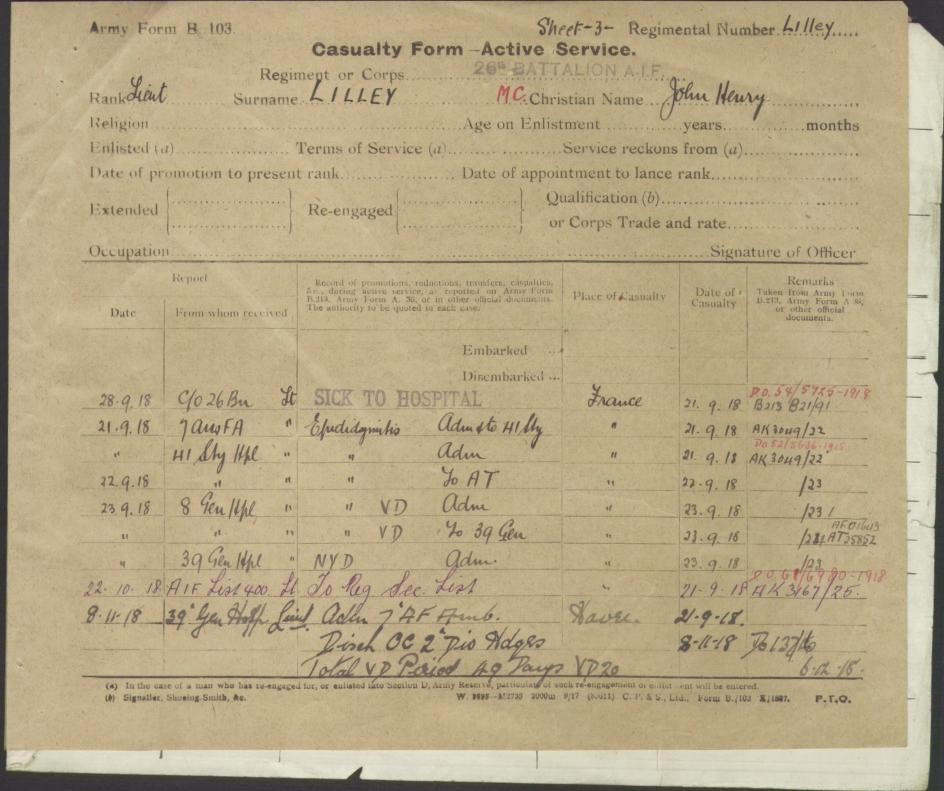 Army Form B. 103. Sheet-3- Regimental Number Lilley
Casualty Form—Active Service.
Regiment or Corps 26th BATTALION A.I.F.
Rank Lieut Surname LILLEY MC. Christian Name John Henry
Religion Age on Enlistment years months
Enlisted (a) Terms of Service (a) Service reckons from (a)
Date of promotion to present rank Date of appointment to lance rank
Extended Re-engaged Qualification (b)
or Corps Trade and rate
Occupation Signature of Officer
Report
Date From whom received
Record of promotions, reductions, transfers, casualties, &c., during active service, as reported on Army Form B.213, Army Form A. 36, or in other official documents. The authority to be quoted in each case.
Place of Casualty
Date of Casualty
Remarks
Taken from Army Form B.213, Army Form A 36, or other official documents.
Embarked
Disembarked
D.O. 54/5725-1918
28.9.18 C/O 26 Bn Lt SICK TO HOSPITAL France 21.9.18 B213 B21/91
21.9.18 7 Aus FA " Epididymitis Adm & to 41 Sty " 21.9.18 AK3049/22
" 41 Sty Hpl " " Adm 21.9.18 AK3049/22
22.9.18 " " " To AT " 22.9.18 /23
23.9.18 8 Gen Hpl " " VD Adm 23.9.18 /23
" " " " VD To 39 Gen " 23.9.18 AT25852
" 39 Gen Hpl " NYD Adm. " 23.9.18 /23
22.10.18 AIF List 400 Lt To Reg Sec List " 21-9-18 AK 3167/25.
8-11-18 39 Gen Hosp Lieut Adm 7 A F Amb. Havre. 21-9-18.
Disch CC 2 Div Hdqes 8-11-18
Total VD Period 49 Days VD 20 6-12-18.
(a) In the case of a man who has re-engaged for, or enlisted into Section D, Army Reserve, particulars of such re-engagement or enlistment will be entered.
(b) Signaller, Shoeing-Smith, &c. C. P. & S., Ltd., Form B./103 P.T.O.